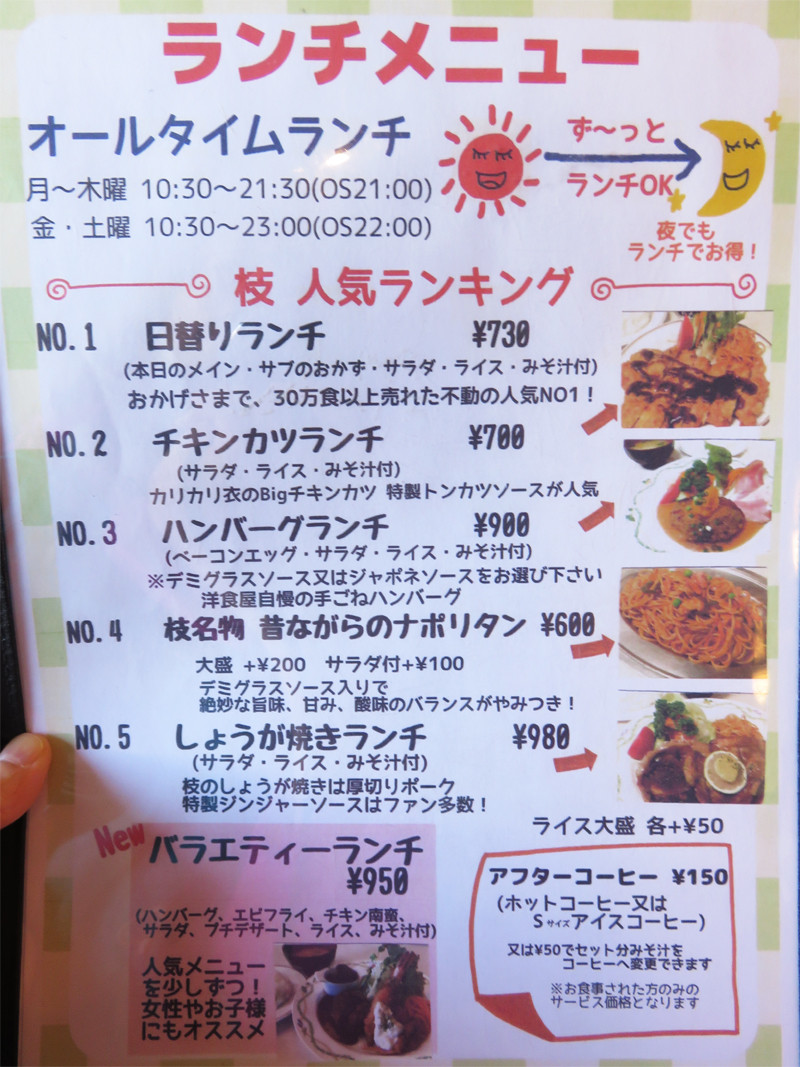 ランチメニュー
オールタイムランチ
月～木曜 10:30～21:30(OS21:00)
金・土曜 10:30～23:00(OS22:00)
ず～っと
ランチOK
夜でも
ランチでお得！
枝 人気ランキング
NO.1 日替りランチ ¥730
(本日のメイン・サブのおかず・サラダ・ライス・みそ汁付)
おかげさまで、30万食以上売れた不動の人気NO1！
NO.2 チキンカツランチ ¥700
(サラダ・ライス・みそ汁付)
カリカリ衣のBigチキンカツ 特製トンカツソースが人気
NO.3 ハンバーグランチ ¥900
(ベーコンエッグ・サラダ・ライス・みそ汁付)
※デミグラスソース又はジャポネソースをお選び下さい
洋食屋自慢の手ごねハンバーグ
NO.4 枝名物 昔ながらのナポリタン ¥600
大盛 +¥200 サラダ付+¥100
デミグラスソース入りで
絶妙な旨味、甘み、酸味のバランスがやみつき！
NO.5 しょうが焼きランチ ¥980
(サラダ・ライス・みそ汁付)
枝のしょうが焼きは厚切りポーク
特製ジンジャーソースはファン多数！
ライス大盛 各+¥50
New バラエティーランチ
¥950
(ハンバーグ、エビフライ、チキン南蛮、
サラダ、プチデザート、ライス、みそ汁付)
人気メニュー
を少しずつ！
女性やお子様
にもオススメ
アフターコーヒー ¥150
(ホットコーヒー又は
Sサイズアイスコーヒー)
又は¥50でセット分みそ汁を
コーヒーへ変更できます
※お食事された方のみの
サービス価格となります